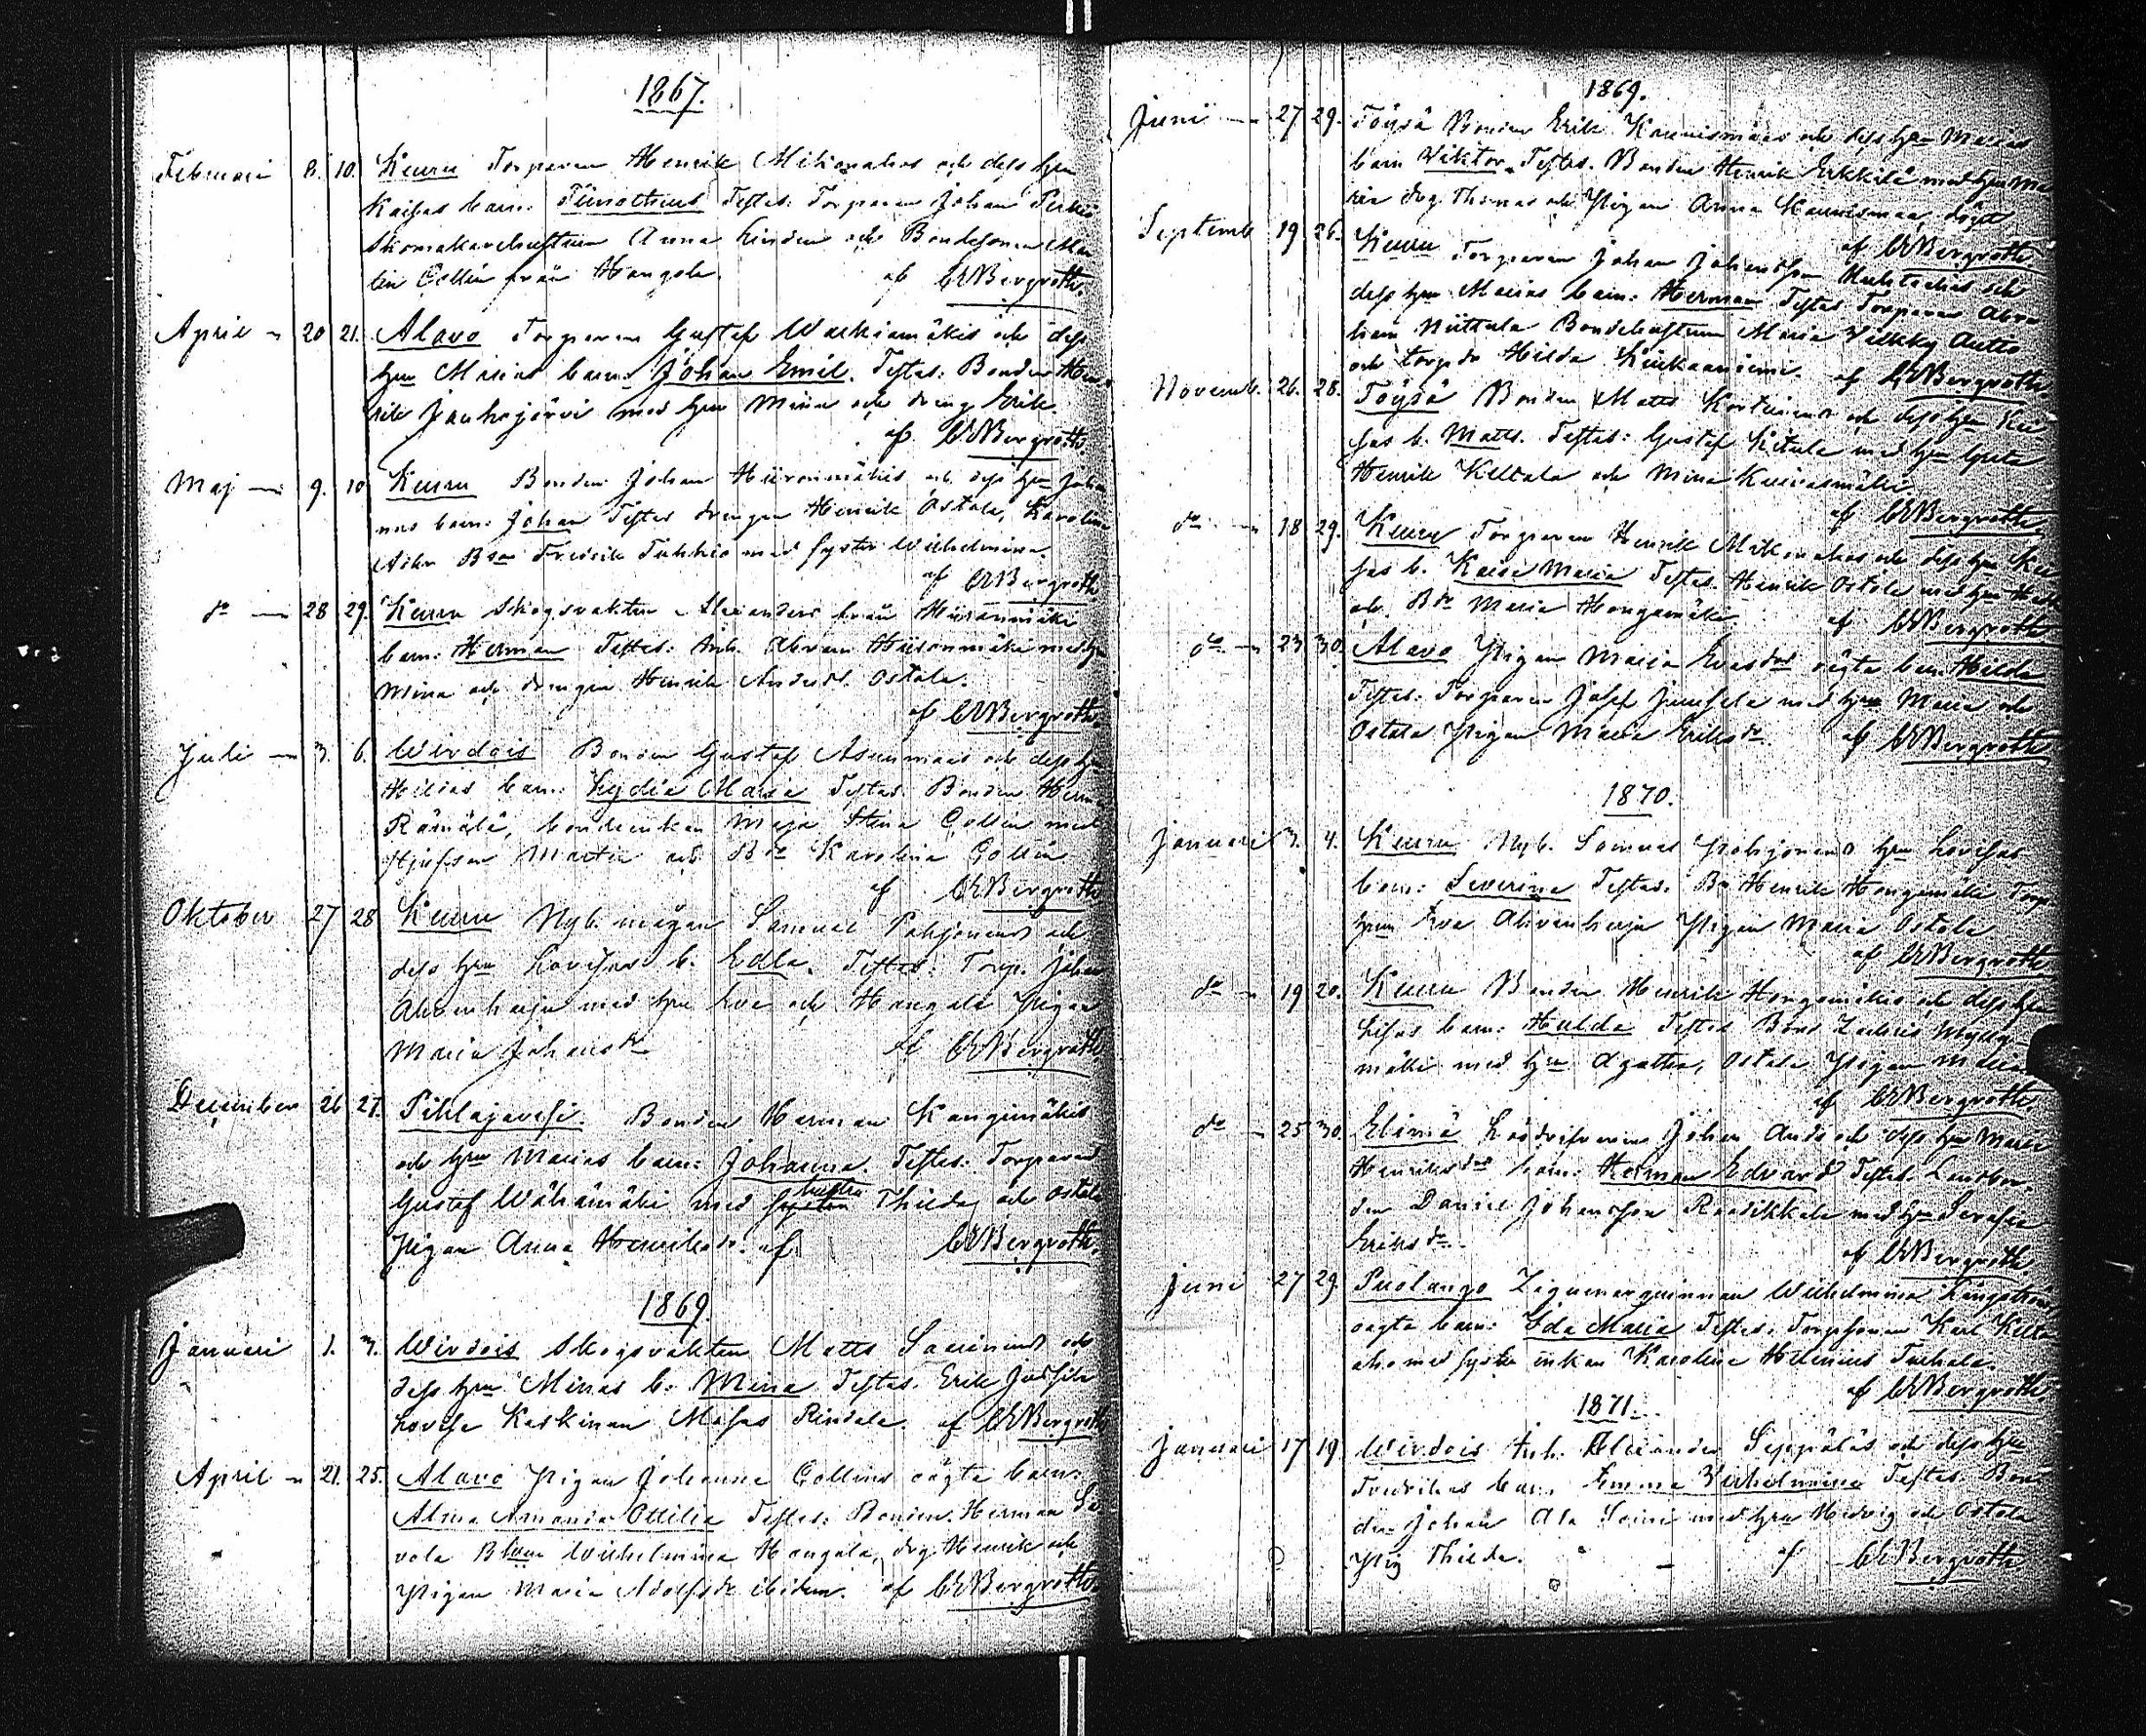 1867.
Februari 8. 10. Keuru Torparen Henrik Mikonahos och dess hru
Kaisas barn: Timotheus Testes: Torparen Johan
Skomakarehustrun Anna Linden och Bondesonen
Collin från Hangola. af CEBergroth.
April 20 21. Alavo Torparen Gustaf Warkiamäkis och dess
hru Marias barn: Johan Emil. Testes: Bonden Hen-
rik Jauhojärvi med hru Mina och dreng Erik.
af CEBergroth.
Maj 9. 10 Keuru Bonden Johan Hiironmäkis och dess hru Johan
nas barn: Johan Testes drengen Henrik Ostola, Karolina
Fredrik Tuhkio med syster Wilhelmina.
af CEBergroth
do 28 29. Keuru Skogsvakten Alexanders från Hiironmäki
barn: Herman Testes: Inh. Abram Hiironmäki med hru
Mina och drengen Henrik Anders. Ostola.
af CEBergroth.
Juli 3. 6. Wirdois Bonden Gustaf Asunmaas och dess hru
Hildas barn: Lydia Maria Testes. Bonden Herm
Rämälä, bondeenkan Maja Stina Collin med
Martin och Bdr Karolina Collin
af CEBergroth
Oktober 27 28 Keuru Nyb. mågen Samuel Pohjonens och
dess hru Lovisas b. Edla. Testes: Torp. Johan
Ahvenharju med hru Eva och Hangala Pigan
Maria Johansdr af CEBergroth
December 26 27. Pihlajavesi. Bonden Herman Kangimäkis
och hru Marias barn: Johanna. Testes: Torparen
hustru
Gustaf Wähämäki med syster Thilda och Ostola
Pigan Anna Henriksdr. af CEBergroth.
1869
Januari 1. 3. Wirdois Skogsvakten Matts Saarinens och
dess hru Minas b: Mina Testes. Erik
Lovisa Keskinen Mosas Rindala. af CEBergroth
April 21. 25. Alavo Pigan Johanna Collins oägta barn:
Alma Amanda Ottilia Testes: Bonden Herman
vola Wilhelmina Hangala, drg. Henrik och
Pigan Maria Adolfsdr ibidem. af CEBergroth.
1869.
Juni 27 29. Töysä Bonden Erik Kaunismaas och dess hru Marias
barn Wiktor. Testes. Bonden Henrik Erkkilä med hru Ma
ria drg. Thomas och Pigan Anna Kaunismaa, döpt
af CEBergroth.
Septemb. 19 26. Keuru Torparen Johan Johansson Huhtaahos och
dess hru Marias barn: Herman Testes Torparen Abra
ham Niittula Bondehustrun Maria Wilkky Autio
och torpdr Hilda Kiikaanniemi. af CEBergroth
Novemb. 26. 28. Töysä Bonden Matts Kortesniemis och dess hru Kai
sas b. Matts. Testes: Gustaf Kitula med hru Greta
Henrik Keltala och Mina
af CEBergroth
do 18 29. Keuru Torparen Henrik Mikonahos och dess hru Kai
sas b. Kaisa Maria Testes. Henrik Ostola med hru
och Bdr Maria Hongamäki. af CEBergroth
do 23 30. Alavo Pigan Maria Evasdrs oägta barn Hilda
Testes: Torparen Josef Junttila med hru Maria och
Ostola Pigan Maria Eriksdr. af CEBergroth
1870.
Januari 3. 4. Keuru Nyb. Samuel Pohjonens hru Lovisas
barn: Severina Testes. Bn Henrik Hongamäki Torp
hrun Eva Ahvenharju Pigan Maria Ostola
af CEBergroth
do 19 20. Keuru Bonden Henrik Hongamäkis och dess hru
Lisas barn: Hulda Testes Bond Zachris Mylly-
mäki med hru Agatha, Ostola Pigan Maria
af CEBergroth.
do 25 30. Elimä Lösdrifvaren Johan Anders och dess hru Maria
Henriksdrs barn: Herman Edvard Testes. Landbon-
den Daniel Johansson Raadikkala med hru Serafia
Eriksdr. af CEBergroth.
Juni 27 29. Puolango Zigenarqvinnan Wilhelmina Långström
oägta barn: Ida Maria Testes: Torpsonen Karl
aho med syster enkan Karolina Helenius Tuhala.
af CEBergroth
1871.
Januari 17 19. Wirdois Inh. Alexander Seppäläs och dess hru
Fredrikas barn, Emma Wilhelmina Testes. Bon-
den Johan Ala Soini med hru Hedvig och Ostola
Pig Thilda. af CEBergroth.